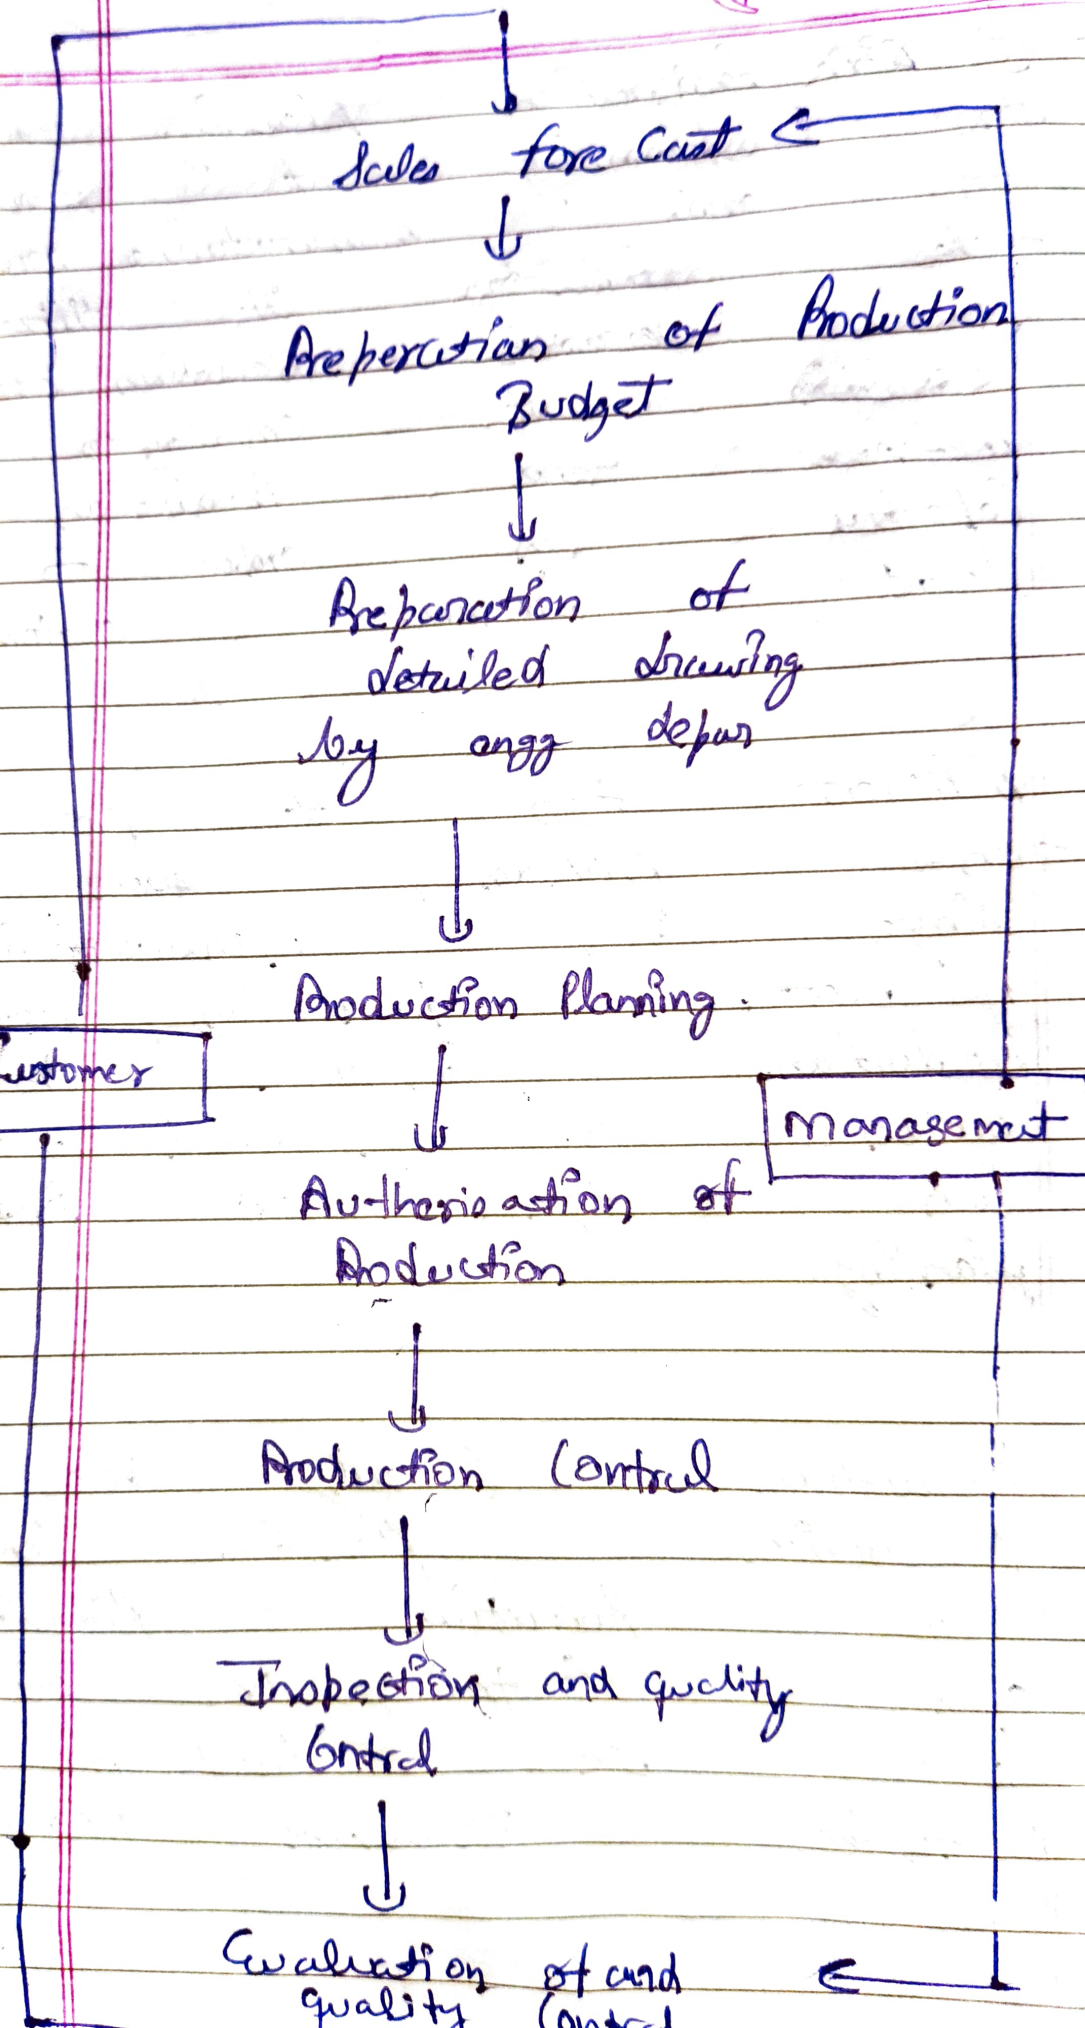 Sales fore Cast
Preperation of Production
Budget
Preparation of
detailed drawing
by engg depar
Production Planning.
ustomer
Management
Authorisation of
Production
Production Control
Inspection and quality
Control
Evaluation of and
quality Control